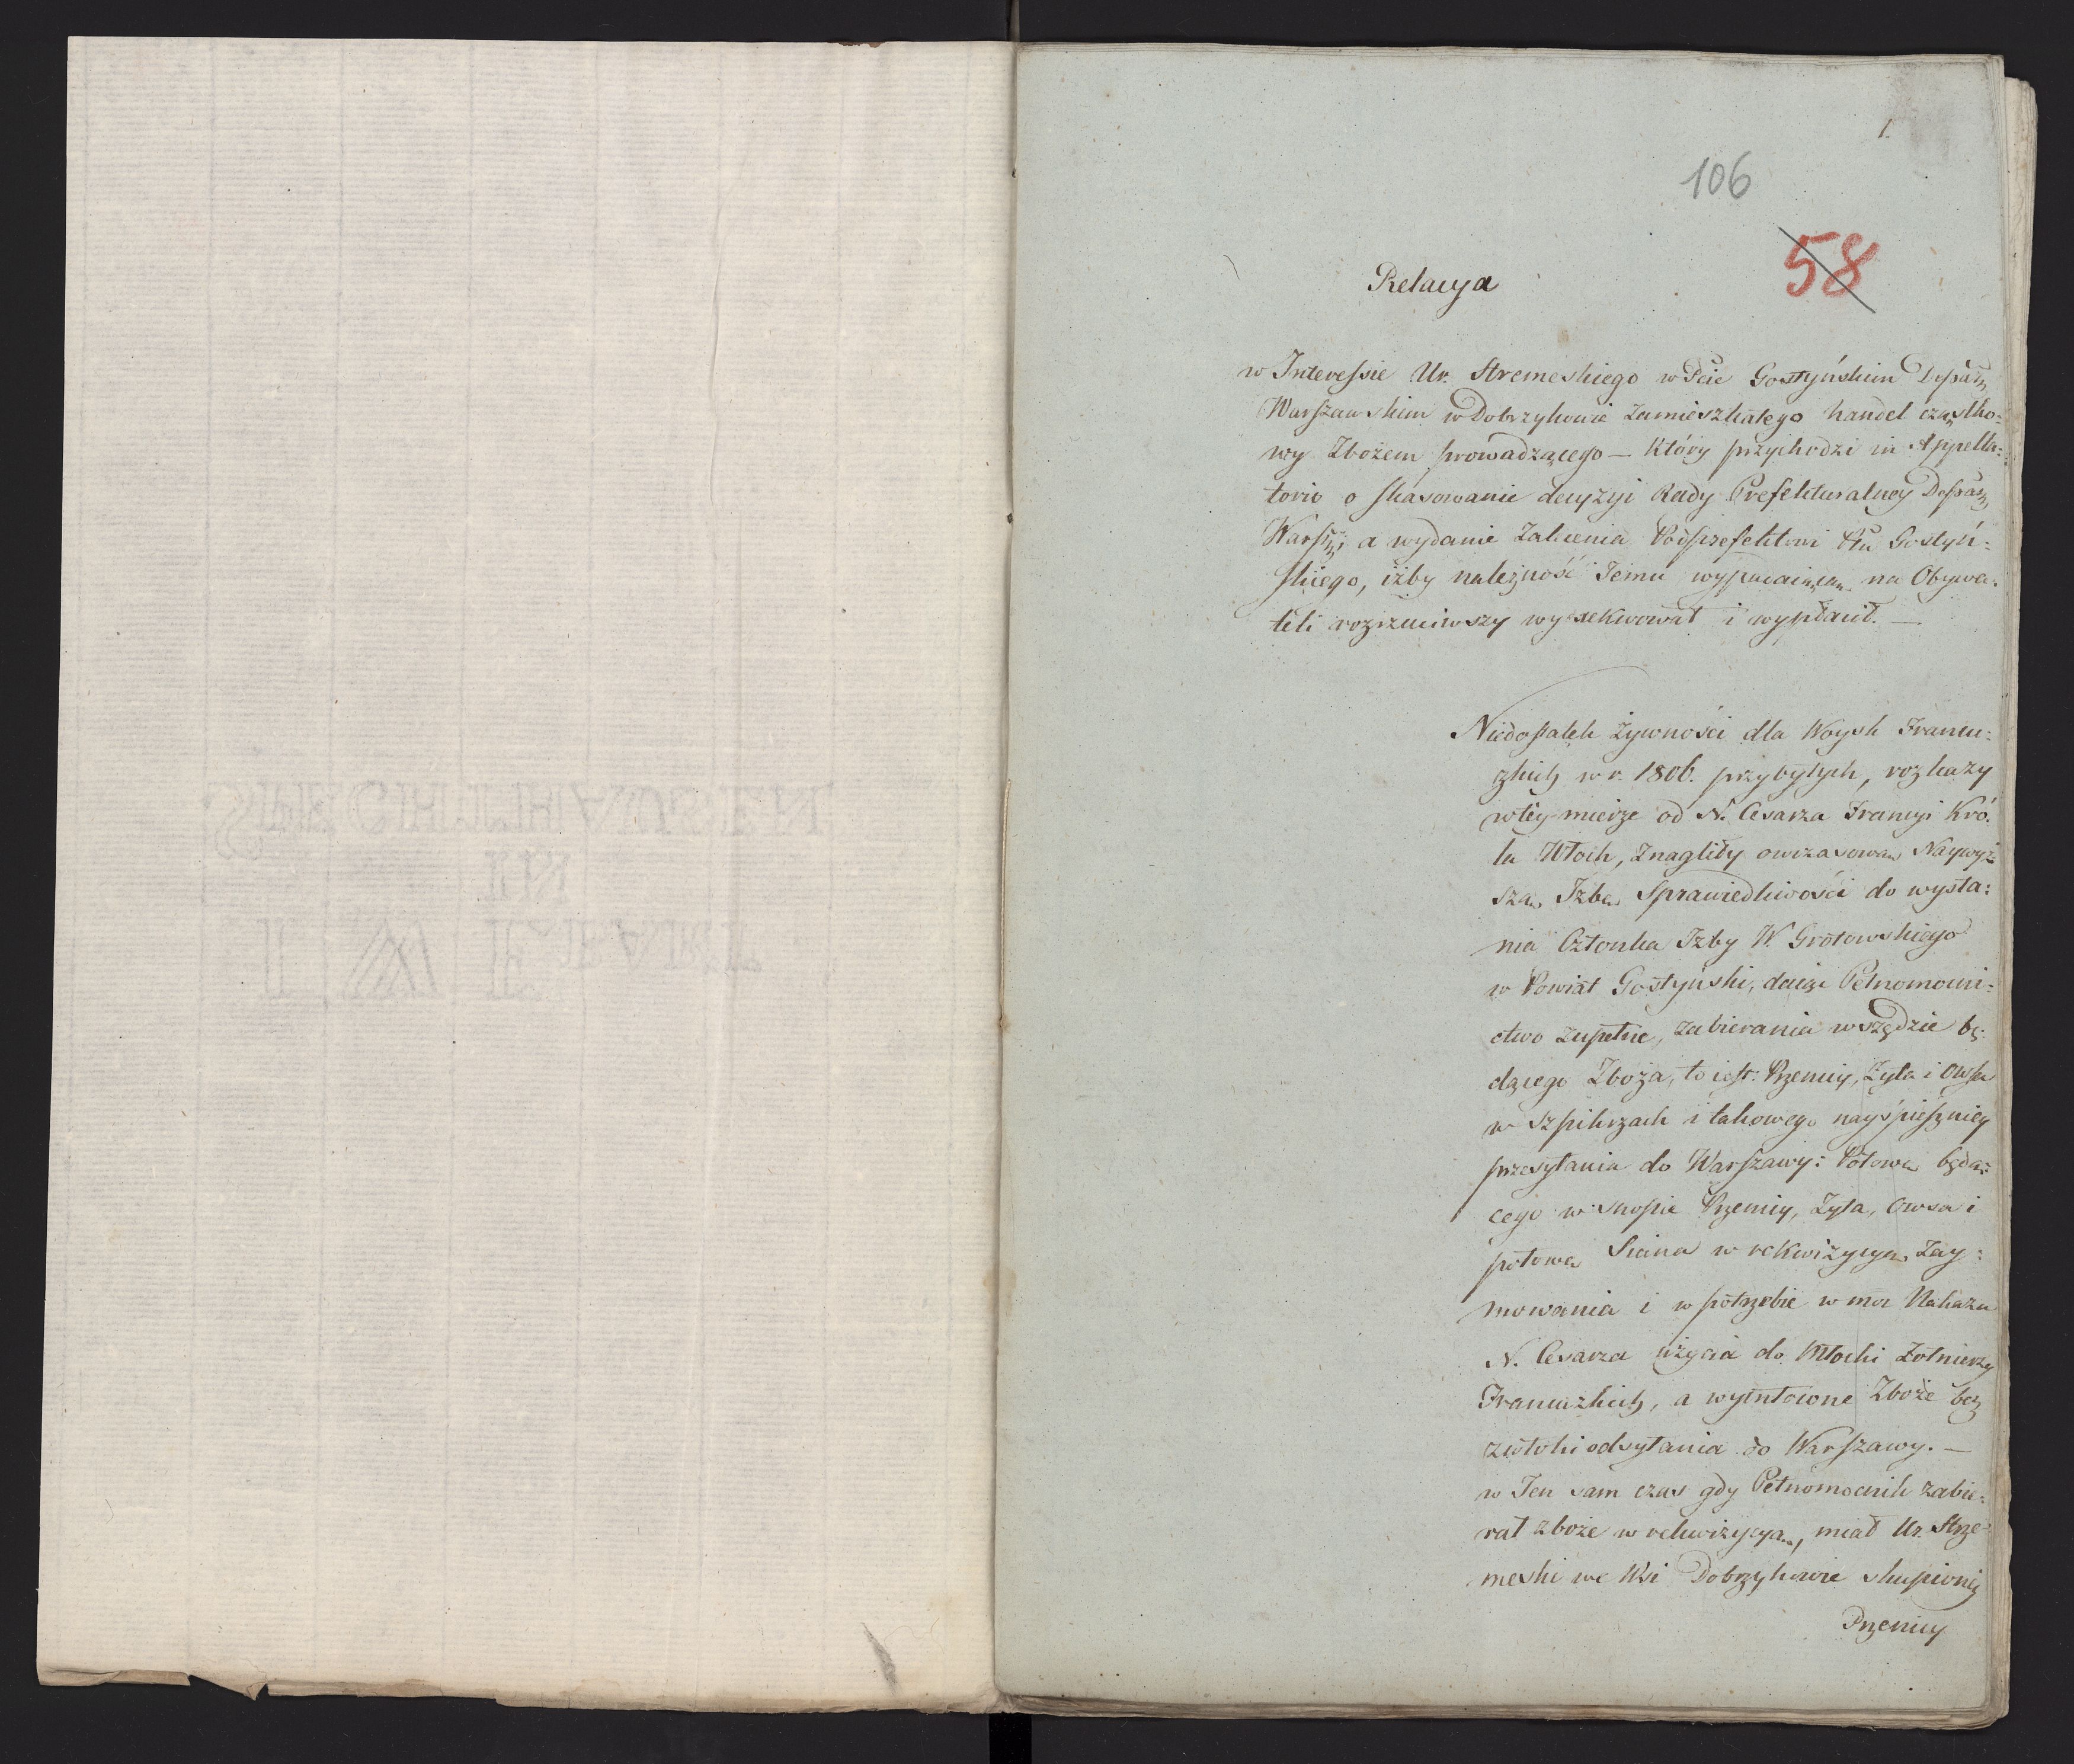 1.
106
58
Relacya
w Interessie Ur. Stremeskiego w Pcie Gostyńskim Depar.
Warszawskim w Dobrzykowie zamieszkałego handel cząstko=
wy Zbożem prowadzącego — który przychodzi in Appella=
torio o skasowanie decyzyi Rady Prefekturalney Depar.
Warsz: a wydanie zalecenia Podprefektowi Ptu Gostyń=
skiego, iżby należność Jemu wypadaiącą na Obywa=
teli rozrzuciwszy wyexekwował i wypłacił. —
Niedostatek żywności dla Woysk Francu=
zkich w r. 1806. przybyłych, rozkazy
w tey mierze od N. Cesarza Francyi Kró=
la Włoch, znagliły owczasową Naywyż=
szą Izbę Sprawiedliwości do wysła=
nia Członka Izby W. Grotowskiego
w Powiat Gostyński, daiąc Pełnomocni=
ctwo zupełne, zabierania wszędzie bę=
dącego Zboża, to iest: Pszenicy, Żyta i Owsa
w Szpikrzach i takowego nayśpieszniey
przesyłania do Warszawy: Połowę będą=
cego w snopie Pszenicy, Żyta, Owsa i
połowę Siana w rekwizycyą zay=
mowania i w potrzebie w moc Nakazu
N. Cesarza użycia do Młocki Żołnierzy
Francuzkich, a wymłócone Zboże bez
zwłoki odsyłania do Warszawy. —
w Ten sam czas gdy Pełnomocnik zabie=
rał zboże w rekwizycyą, miał Ur. Strze=
meski we Wsi Dobrzykowie skupioney
Pszenicy